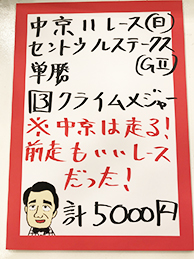 中京11レース(日)
セントウルステークス
単勝 (GⅡ)
13クライムメジャー
※中京は走る!
前走もいいレース
だった!
計5000円